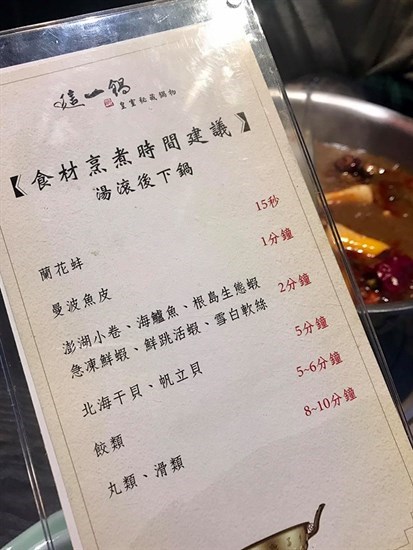 這一鍋
皇室秘藏鍋物
【食材烹煮時間建議】
湯滾後下鍋
蘭花蚌 15秒
曼波魚皮 1分鐘
澎湖小卷、海鱸魚、根島生態蝦
急凍鮮蝦、鮮跳活蝦、雪白軟絲 2分鐘
北海干貝、帆立貝 5分鐘
餃類 5~6分鐘
丸類、滑類 8~10分鐘